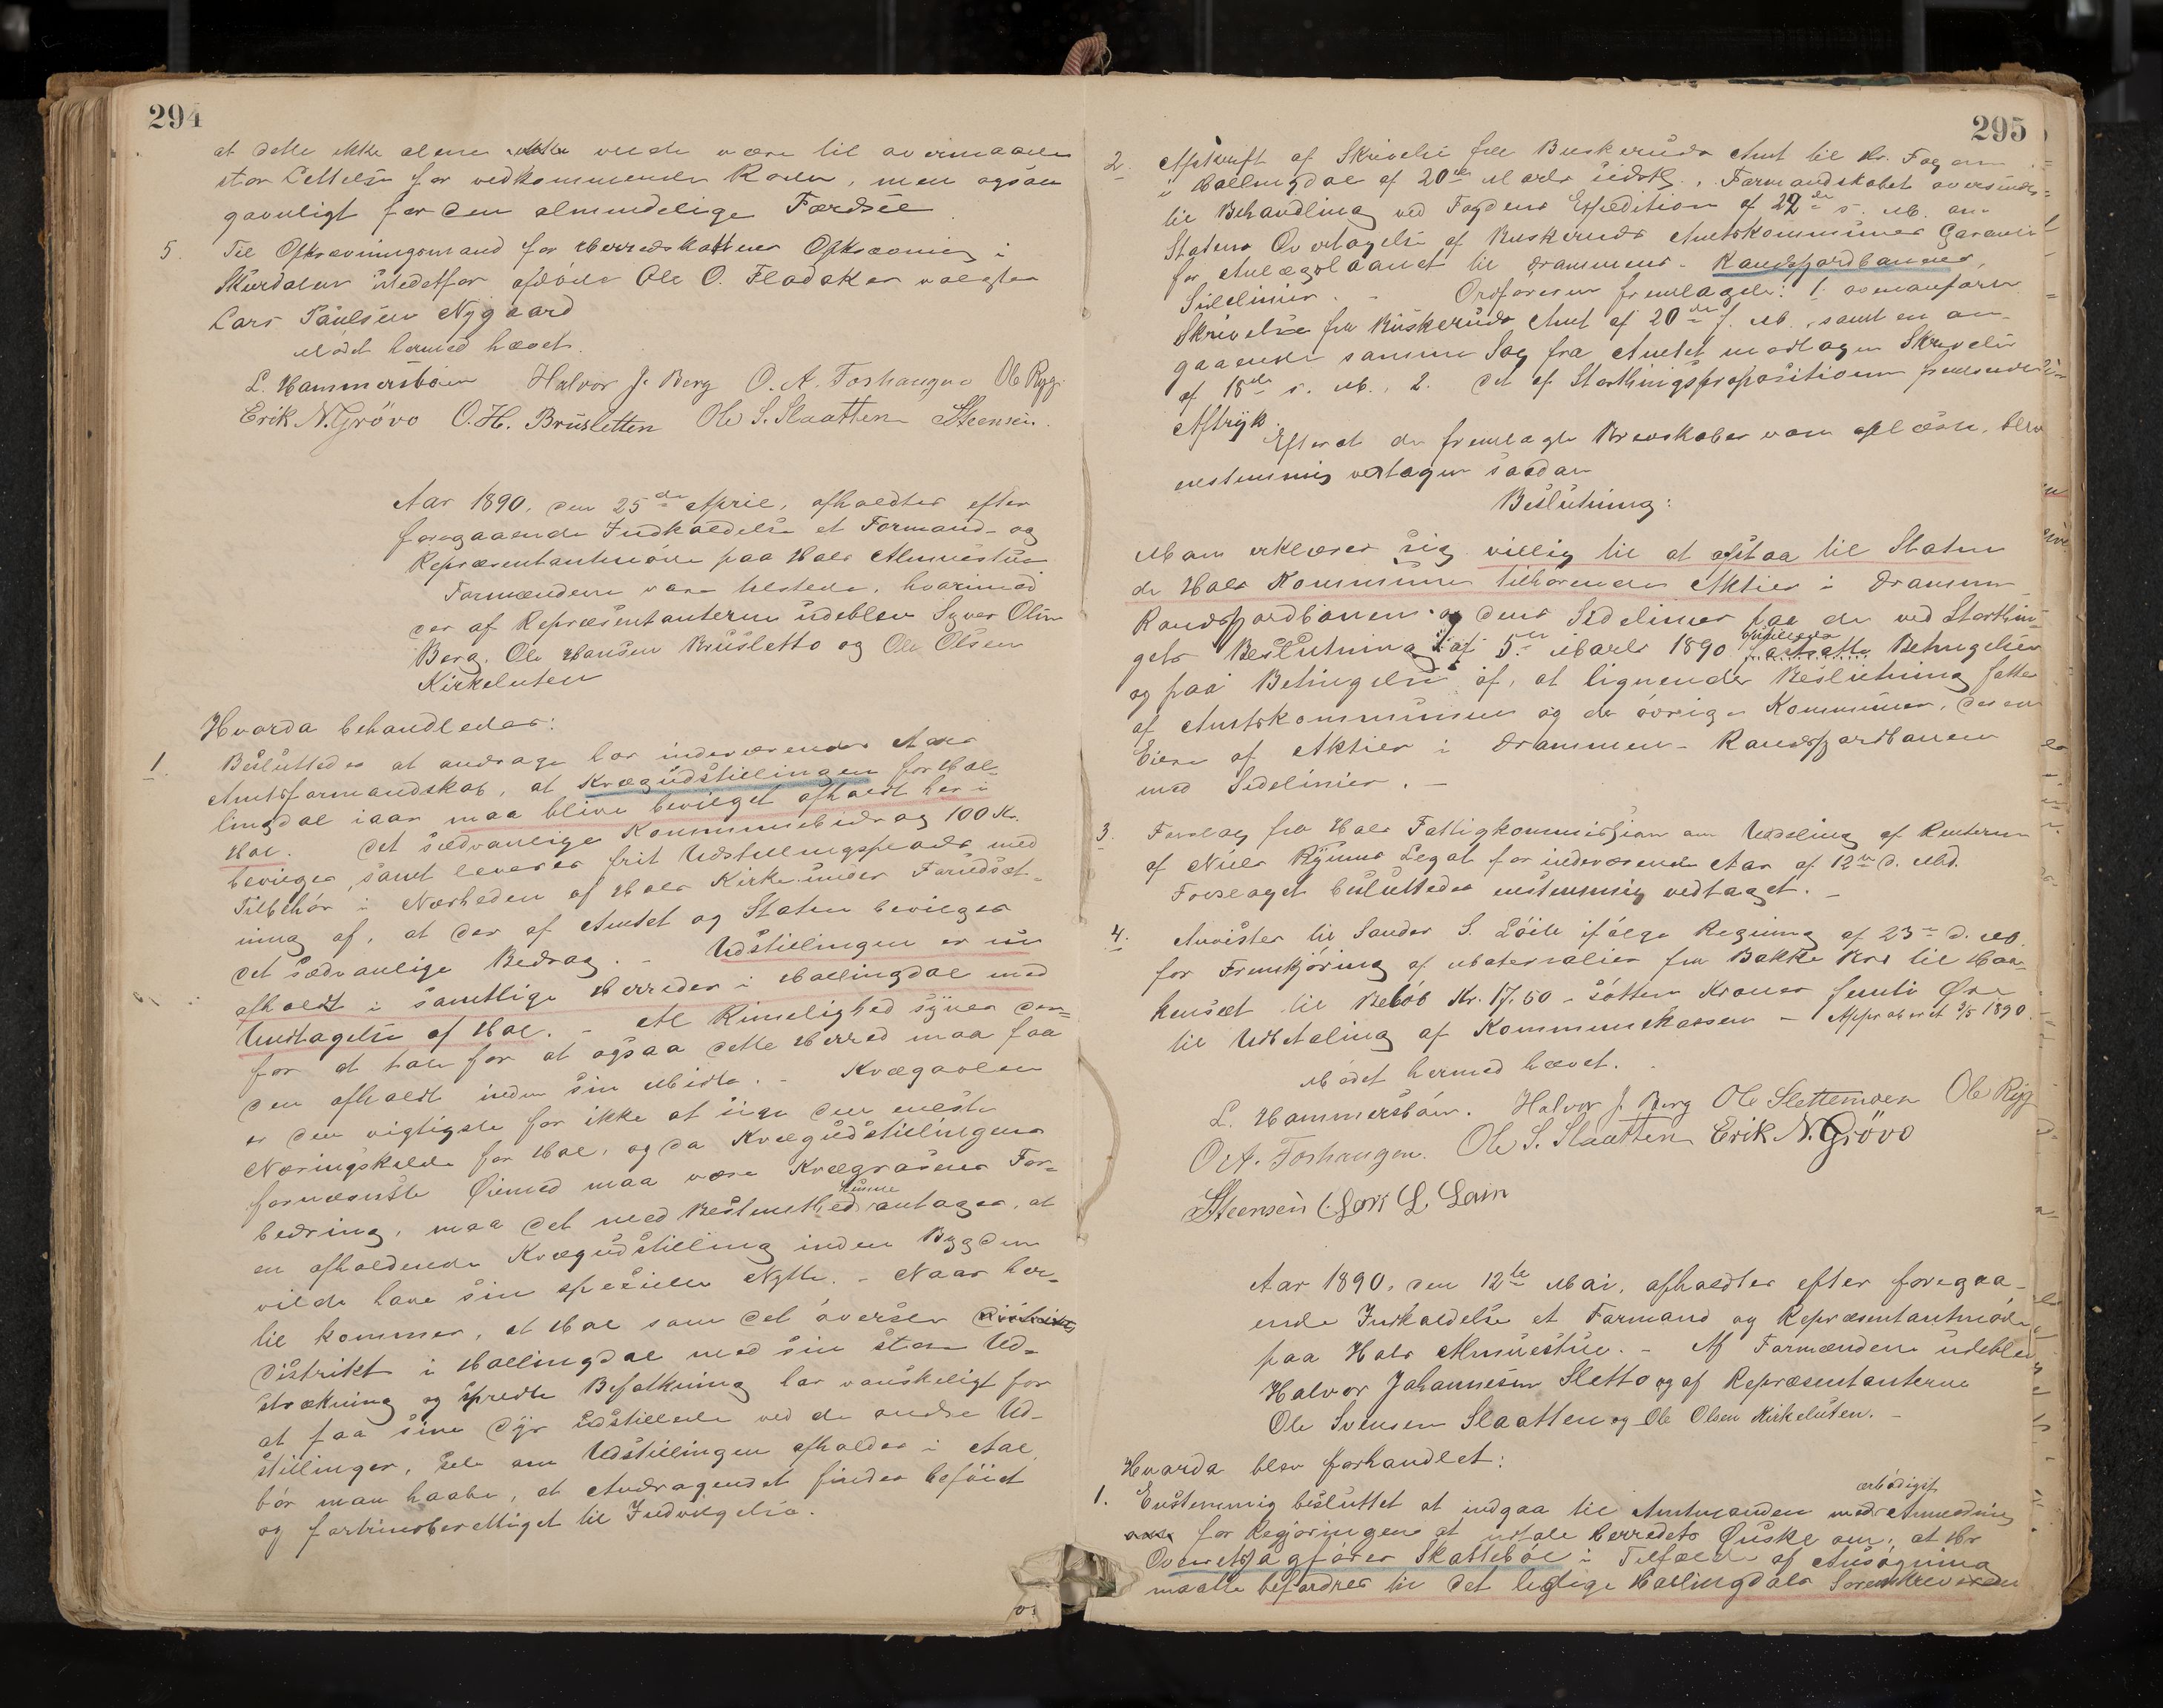 294
at dette ikke alene vilde være til overmaade
stor Lettelse for vedkommende Roder, men ogsaa
gavnligt for den almindelige Færdsel
5. Til Opkrævningsmand for Herredskattens Opkrævning i
Skurdalen istedetfor afdøde Ole O. Fladaker valgtes
Lars Paulsen Nygaard
Mødet hermed hævet.
L. Hammersbøen Halvor J. Berg O. A. Foshaugen Ole Rygg.
Erik N. Grövo O. H. Brusletten Ole S. Slaatten Steensen.
Aar 1890, den 25de April, afholdtes efter
foregaaende Indkaldelse et Formand- og
Repræsentantmøde paa Hols Almuestue
Formændene vare tilstede, hvorimod
der af Repræsentanterne udeblev Syver Olsen
Berg, Ole Hansen Brusletto og Ole Olsen
Kirkeluten
Hvorda behandledes:
1. Besluttedes at andrage for indeværende Aars
Amtsformandskab, at Kvægudstillingen for Hal-
lingdal iaar maa blive bevilget afholdt her i
Hol. Det sædvanlige Kommunebidrag 100 Kr.
bevilges, samt leveres frit Udstillingsplads med
Tilbehør i Nærheden af Hols Kirke under Forudsæt-
ning af, at der af Amtet og Staten bevilges
det sædvanlige Bedrag. - Udstillingen er nu
afholdt i samtlige Herreder i Hallingdal med
Undtagelse af Hol. - Al Rimelighed synes der-
for at tale for at ogsaa dette Herred maa faa
den afholdt inden sin Midte. - Kvægavlen
er den vigtigste for ikke at sige den eneste
Næringskilde for Hol, og da Kvægudstillingens
fornemste Øiemed maa være Kvægracens For-
bedring, maa det med Bestemthed kunne antages, at
en afholdende Kvægudstilling inden Bygden
vilde have sin specielle Nytte. - Naar her-
til kommer, at Hol som det øverste
Distrikt i Hallingdal med sin store Ud-
strækning og spredte Befolkning har vanskeligt for
at faa sine Dyr udstillede ved de andre Ud-
stillinger, selv om Udstillingen afholdes i Aal
bør man haabe, at Andragendet findes beføiet
og fortrinsberettiget til Indvilgelse.
295
2. Afskrift af Skrivelse fra Buskeruds Amt til Hr. Fogden
i Hallingdal af 20de Marts sidstl., Formandskabet oversendt
til Behandling ved Fogdens Expedition af 22de s. M. om
Statens Overtagelse af Buskeruds Amtskommunes Garanti
for Anlægslaanet til Drammens-Randsfjordbanens
Sidelinier. - Ordføreren fremlagde: 1. ovenanførte
Skrivelse fra Buskeruds Amt af 20de f. M., samt en an-
gaaende samme Sag fra Amtet modtagen Skrivelse
af 18de s. M., 2. det af Storthingspropositionen fremsendte
Aftryk.
Efterat de fremlagte Brevskaber vare oplæste, blev
enstemmig vedtagen saadan
Beslutning:
Man erklærer sig villig til at afstaa til Staten
de Hols Kommune tilhørende Aktier i Drammen-
Randsfjordbanen og dens Sidelinier paa de ved Storthin-
gets Beslutning af 5te Marts 1890 fastsatte Betingelser
og paa Betingelse af, at lignende Beslutning fattes
af Amtskommunen og de øvrige Kommuner, der er
Eiere af Aktier i Drammen-Randsfjordbanen
med Sidelinier. -
3. Forslag fra Hols Fattigkommission om Uddeling af Renterne
af Niels Rymes Legat for indeværende Aar af 12te d. Md.
Forslaget besluttedes enstemmig vedtaget. -
4. Anvistes til Sander S. Løite ifølge Regning af 23de d. M.
for Fremkjøring af Materialier fra Bakke Bro til Haa-
kenset til Beløb Kr. 17.50 - søtten Kroner femti Øre
til Udbetaling af Kommunekassen - Approberet 3/5 1890.
Mødet hermed hævet.
L. Hammersbøen. Halvor J. Berg Ole Slettemoen Ole Rygg
O. A. Foshaugen. Ole S. Slaatten Erik N. Grövo
Steensen Lars L. Lein
Aar 1890, den 12te Mai, afholdtes efter foregaa-
ende Indkaldelse et Formand og Repræsentantmøde
paa Hols Almuestue. - Af Formændene udeblev
Halvor Johannesen Sletto og af Repræsentanterne
Ole Svensen Slaatten og Ole Olsen Kirkeluten. -
Hvorda blev forhandlet:
1. Enstemmig besluttet at indgaa til Amtmanden med ærbødigst Anmodning
for Regjeringen at udtale Herredets Ønske om, at Hr
Overretssagfører Skattebøl i Tilfælde af Ansøgning
maatte befordres til det ledige Hallingdals Sorenskriverem